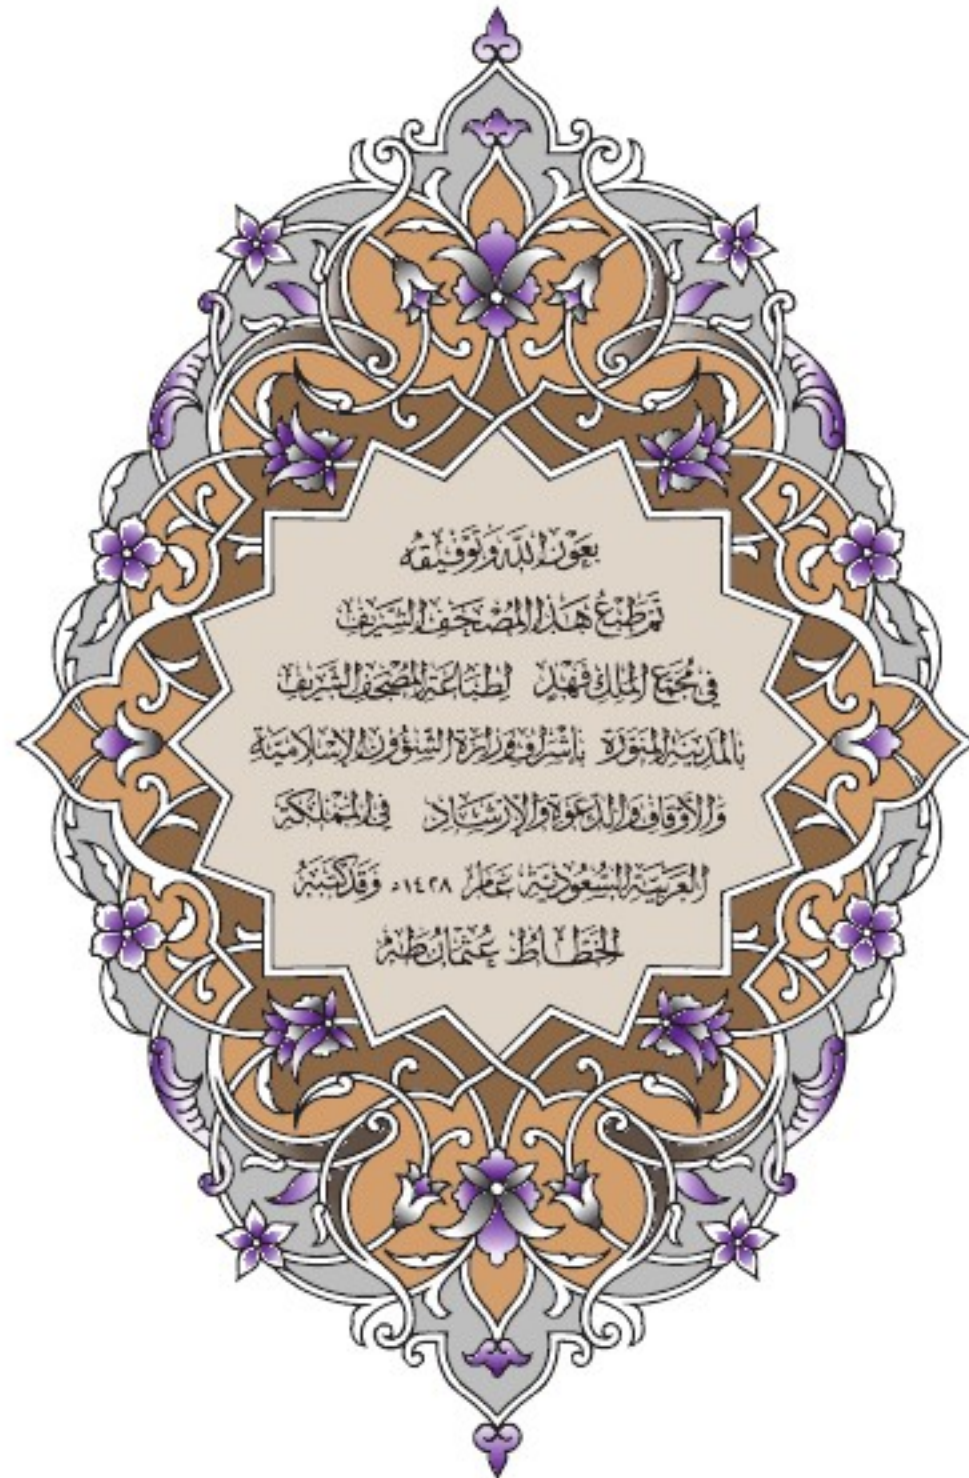 بِعَوْنِ اللَّهِ وَتَوْفِيقِهِ
تَمَّ طَبْعُ هَذَا الْمُصْحَفِ الشَّرِيفِ
فِي مُجَمَّعِ الْمَلِكِ فَهْدٍ لِطِبَاعَةِ الْمُصْحَفِ الشَّرِيفِ
بِالْمَدِينَةِ الْمُنَوَّرَةِ بِإِشْرَافِ وِزَارَةِ الشُّؤُونِ الْإِسْلَامِيَّةِ
وَالْأَوْقَافِ وَالدَّعْوَةِ وَالْإِرْشَادِ فِي الْمَمْلَكَةِ
الْعَرَبِيَّةِ السُّعُودِيَّةِ عَامَ ١٤٢٨ھ وَقَدْ كَتَبَهُ
الْخَطَّاطُ عُثْمَانُ طٰهٰ